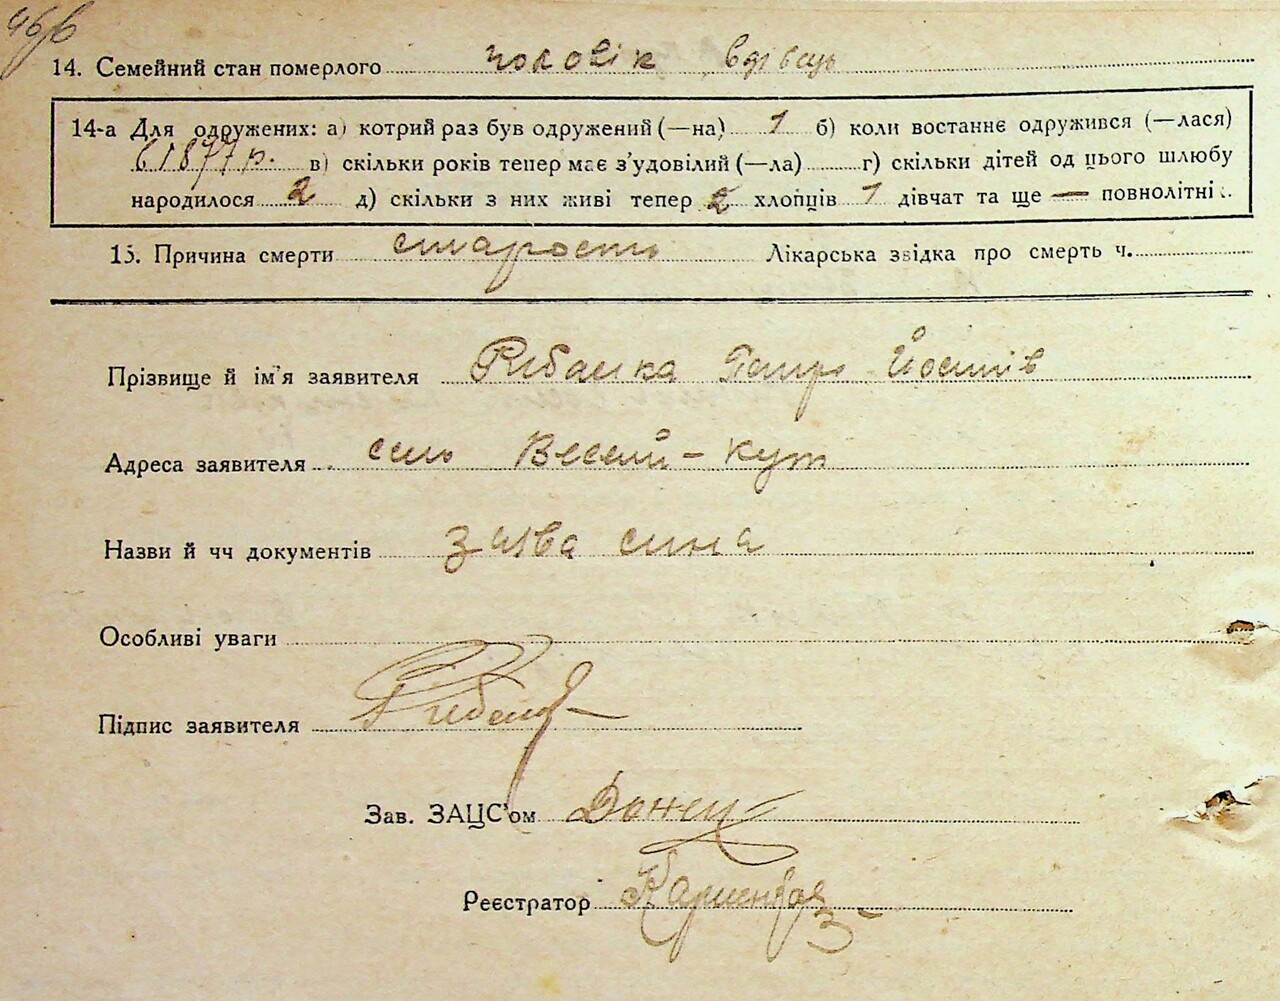 46в
14. Семейний стан померлого чоловік вдівець
14-а Для одружених: а) котрий раз був одружений (—на) 1 б) коли востаннє одружився (—лася)
в 1877 р. в) скільки років тепер має з’удовілий (—ла) г) скільки дітей од цього шлюбу
народилося 2 д) скільки з них живі тепер 2 хлопців 1 дівчат та ще — повнолітні
15. Причина смерти старость Лікарська звідка про смерть ч.
Прізвище й ім’я заявителя Рибалка Петро
Адреса заявителя село Веселий-кут
Назви й чч документів заява сина
Особливі уваги
Підпис заявителя
Зав. ЗАЦС’ом Донец
Реєстратор